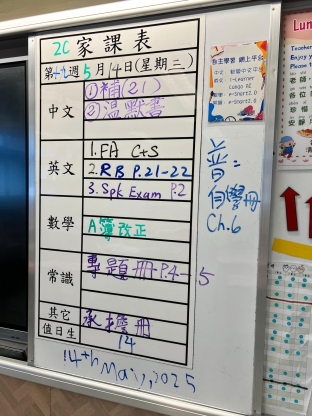 2C 家課表
第十九週5月14日(星期三)
中文
①補(21)
②溫默書
英文
1.FA C+S
2.RB P.21-22
3.Spk Exam P.2
數學
A簿改正
常識
專題冊P.4-5
其它
承擔冊
值日生
14
14th May,2025
普:
自學冊
Ch.6
自主學習 網上平台